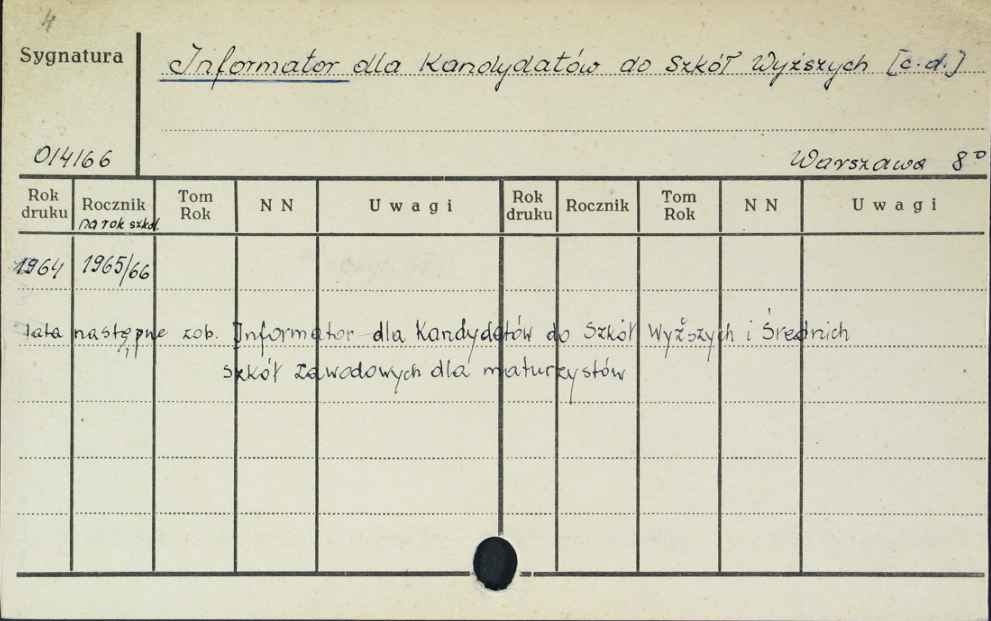 4
Sygnatura
Informator dla Kandydatów do Szkół Wyższych [c.d.]
0/4/66
Warszawa 8°
Rok druku Rocznik na rok szkol. Tom Rok N N Uwagi Rok druku Rocznik Tom Rok N N Uwagi
1964 1965/66
lata następne zob. Informator dla Kandydatów do Szkół Wyższych i Średnich
Szkół Zawodowych dla maturzystów